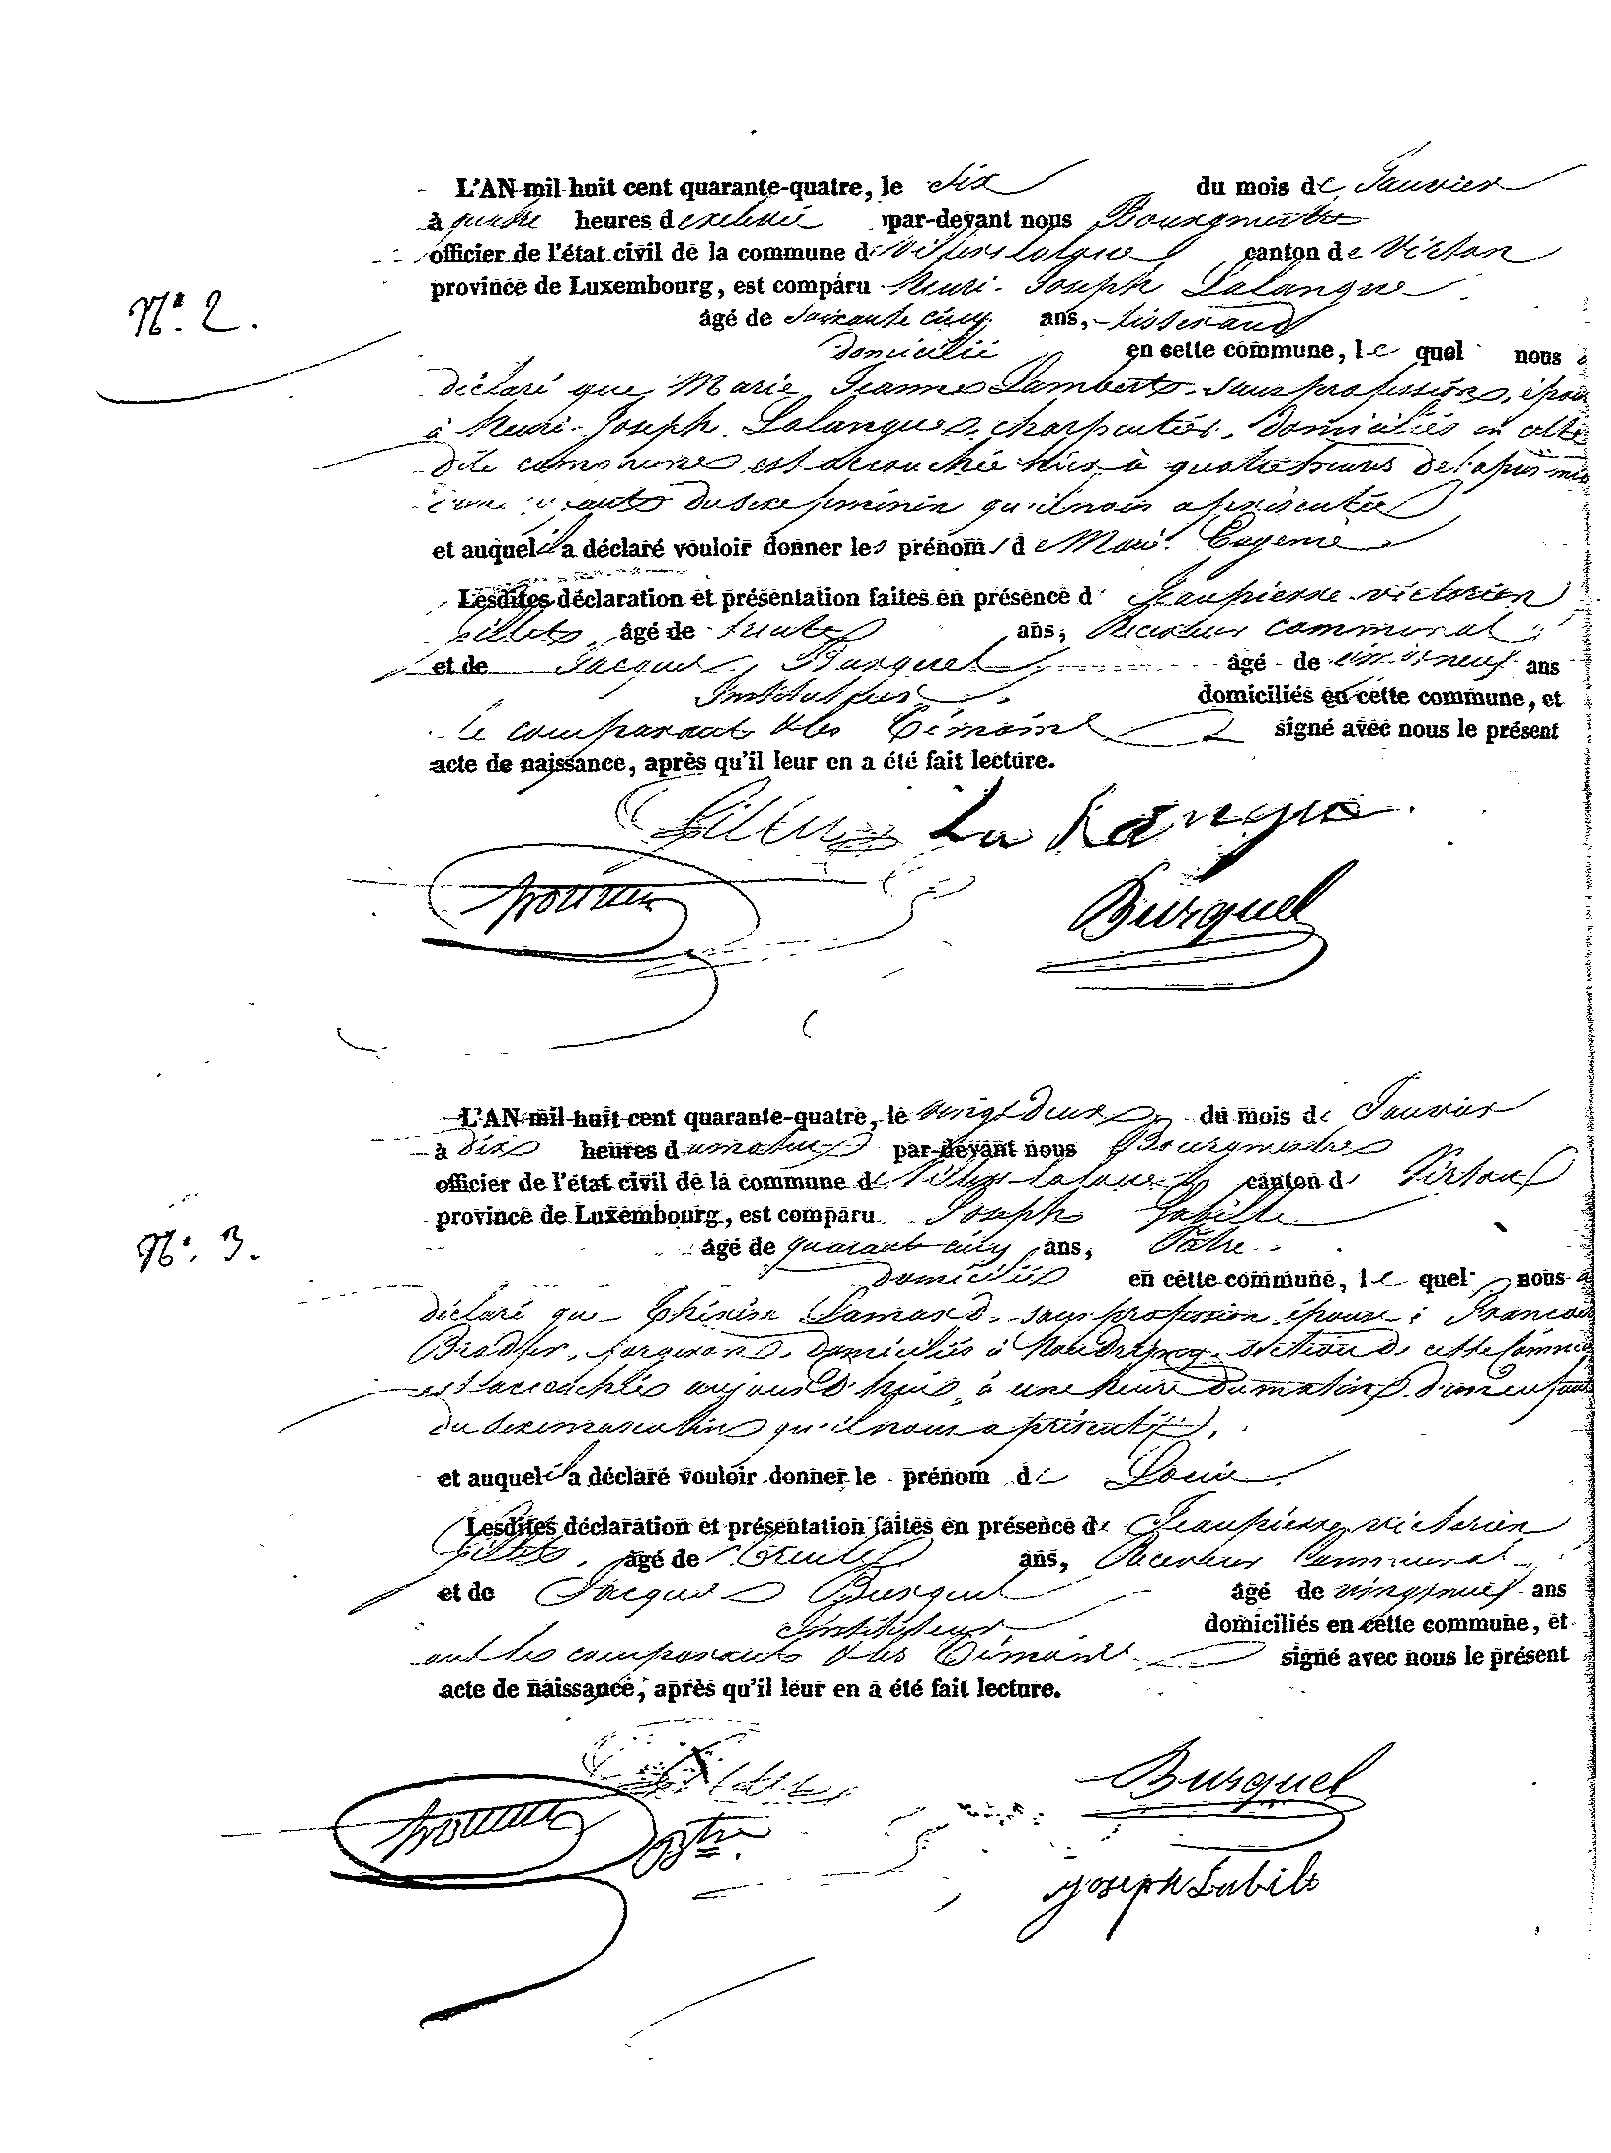 L'AN mil huit cent quarante-quatre, le six du mois de Janvier
à quatre heures de relevée par-devant nous Bourgmestre
officier de l'état civil de la commune de Villers la loue canton de Virton
province de Luxembourg, est comparu Henri-Joseph Lalangue
N° 2.
âgé de soixante cinq ans, tisserand
domicilié en cette commune, le quel nous a
déclaré que Marie Jeanne Lambert sans profession, épouse
à Henri-Joseph Lalangue, charpentier, domiciliés en cette
dite commune est accouchée hier à quatre heures de l'après midi
du sexe féminin qu'il nous a présentée
et auquel il a déclaré vouloir donner les prénoms de Marie Eugenie
Lesdites déclaration et présentation faites en présence de Jean pierre victorien
Gillet, âgé de trente ans, Receveur communal
et de Jacques Burquel âgé de vingt neuf ans
Instituteur domiciliés en cette commune, et
le comparant & les témoins signé avec nous le présent
acte de naissance, après qu'il leur en a été fait lecture.
La Langue
Burquel
L'AN mil huit cent quarante-quatre, le vingt deux du mois de Janvier
à dix heures du matin par-devant nous Bourgmestre
officier de l'état civil de la commune de Villers la loue canton de Virton
province de Luxembourg, est comparu Joseph
N° 3.
âgé de quarante cinq ans, Pâtre
domicilié en cette commune, le quel nous a
déclaré que Thérèse Lamard, sans profession, épouse à François
forgeron, domiciliés à section de cette Commune
est accouchée aujourd'hui, à une heure du matin d'un enfant
du sexe masculin qu'il nous a présenté,
et auquel il a déclaré vouloir donner le prénom de Louis
Lesdites déclaration et présentation faites en présence de Jean pierre victorien
Gillet, âgé de trente ans, Receveur Communal
et de Jacques Burquel âgé de vingt neuf ans
Instituteur domiciliés en cette commune, et
ont les comparants & les témoins signé avec nous le présent
acte de naissance, après qu'il leur en a été fait lecture.
Burquel
Joseph